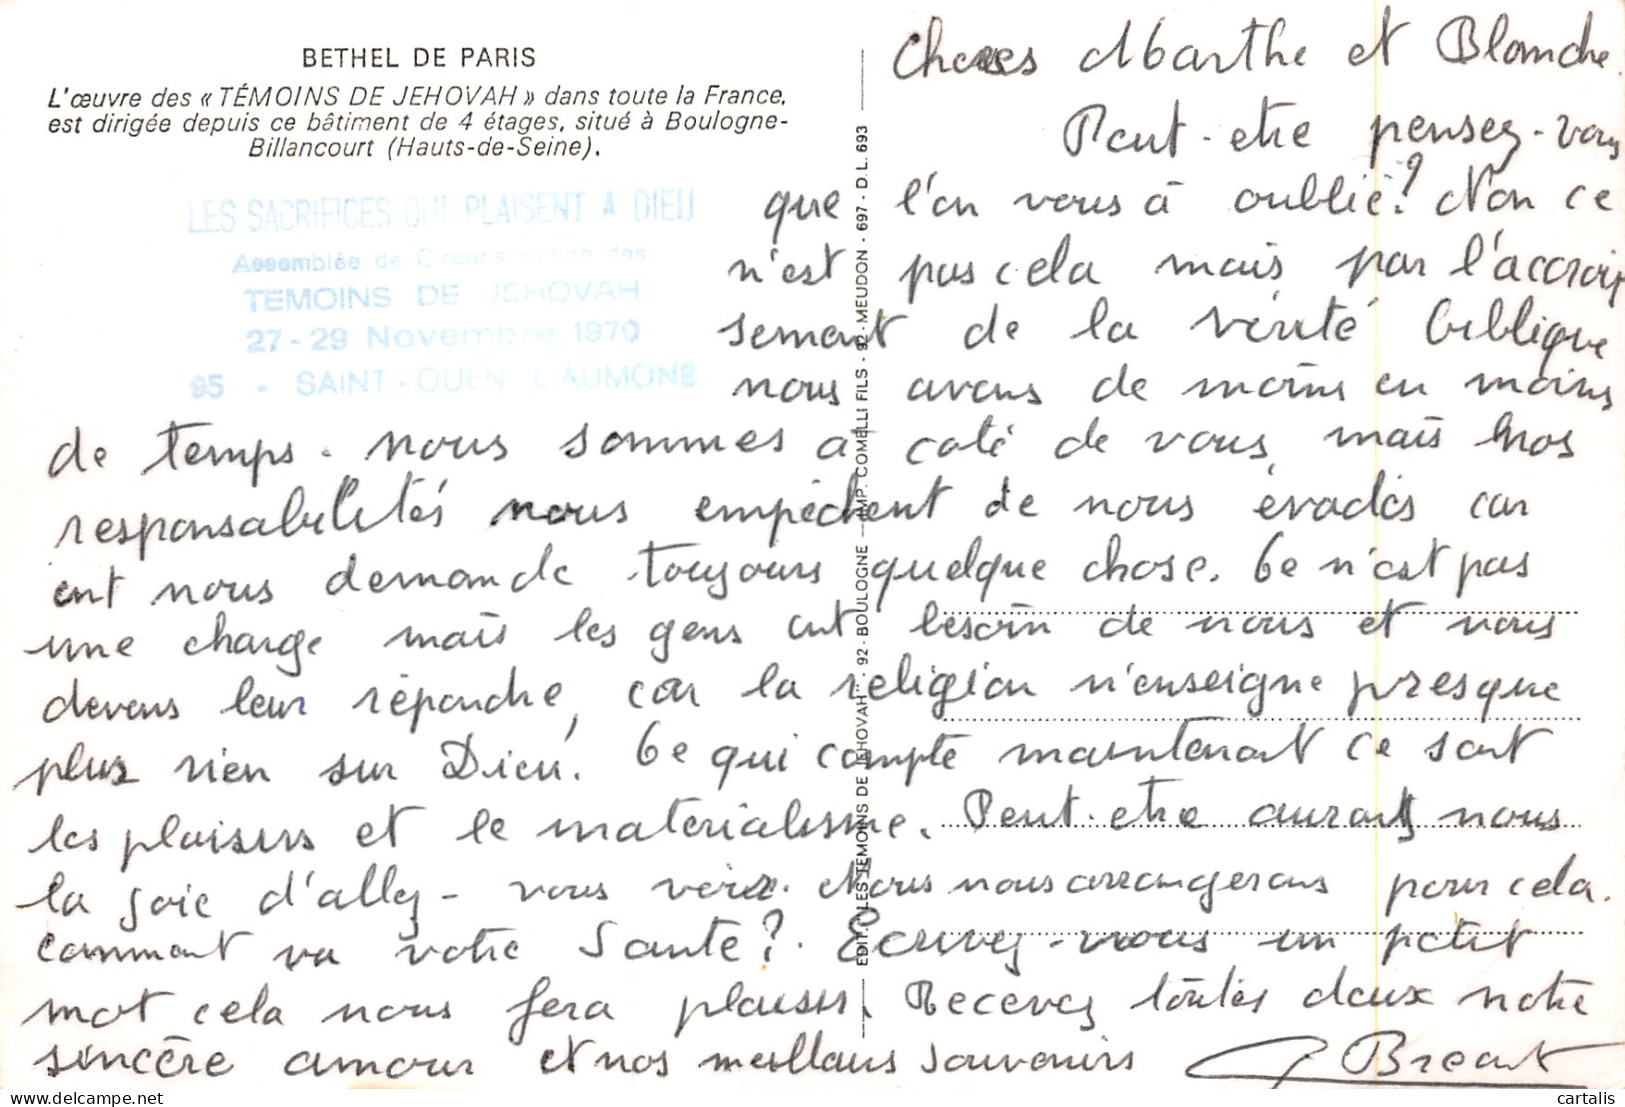 BETHEL DE PARIS
L'œuvre des « TÉMOINS DE JEHOVAH » dans toute la France,
est dirigée depuis ce bâtiment de 4 étages, situé à Boulogne-
Billancourt (Hauts-de-Seine).
LES SACRIFICES QUI PLAISENT A DIEU
Assemblée de Circonscription des
TEMOINS DE JEHOVAH
27 - 29 Novembre 1970
95 - SAINT - OUEN L'AUMONE
EDIT. : LES TEMOINS DE JEHOVAH - 92 - BOULOGNE — IMP. COMELLI FILS - 92 - MEUDON - 697 - D.L. 693
Cheres Marthe et Blanche.
Peut-etre pensez-vous
que l'on vous à oublié? Non ce
n'est pas cela mais par l'accrois
sement de la vérité biblique
nous avons de moins en moins
de temps. nous sommes a coté de vous, mais nos
responsabilités nous empêchent de nous évadés car
ont nous demande toujours quelque chose. Ce n'est pas
une charge mais les gens ont besoin de nous et nous
devons leur répondre, car la religion n'enseigne presque
plus rien sur Dieu! Ce qui compte maintenant ce sont
les plaisirs et le materialisme. Peut-etre auront nous
la joie d'allez-vous voir. Nous nous arrangerons pour cela.
Comment va votre Santé? Ecrivez-nous un petit
mot cela nous fera plaisir. Recevez toutes deux notre
sincère amour et nos meilleurs souvenirs Breant
cartalis